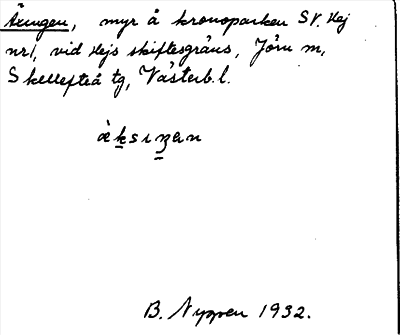 Äxingen, myr å kronoparken SV. Hej
nr 1, vid Hejs skiftesgräns, Jörn sn,
Skellefteå tg, Västerb. l.
B. Nyppen 1932.